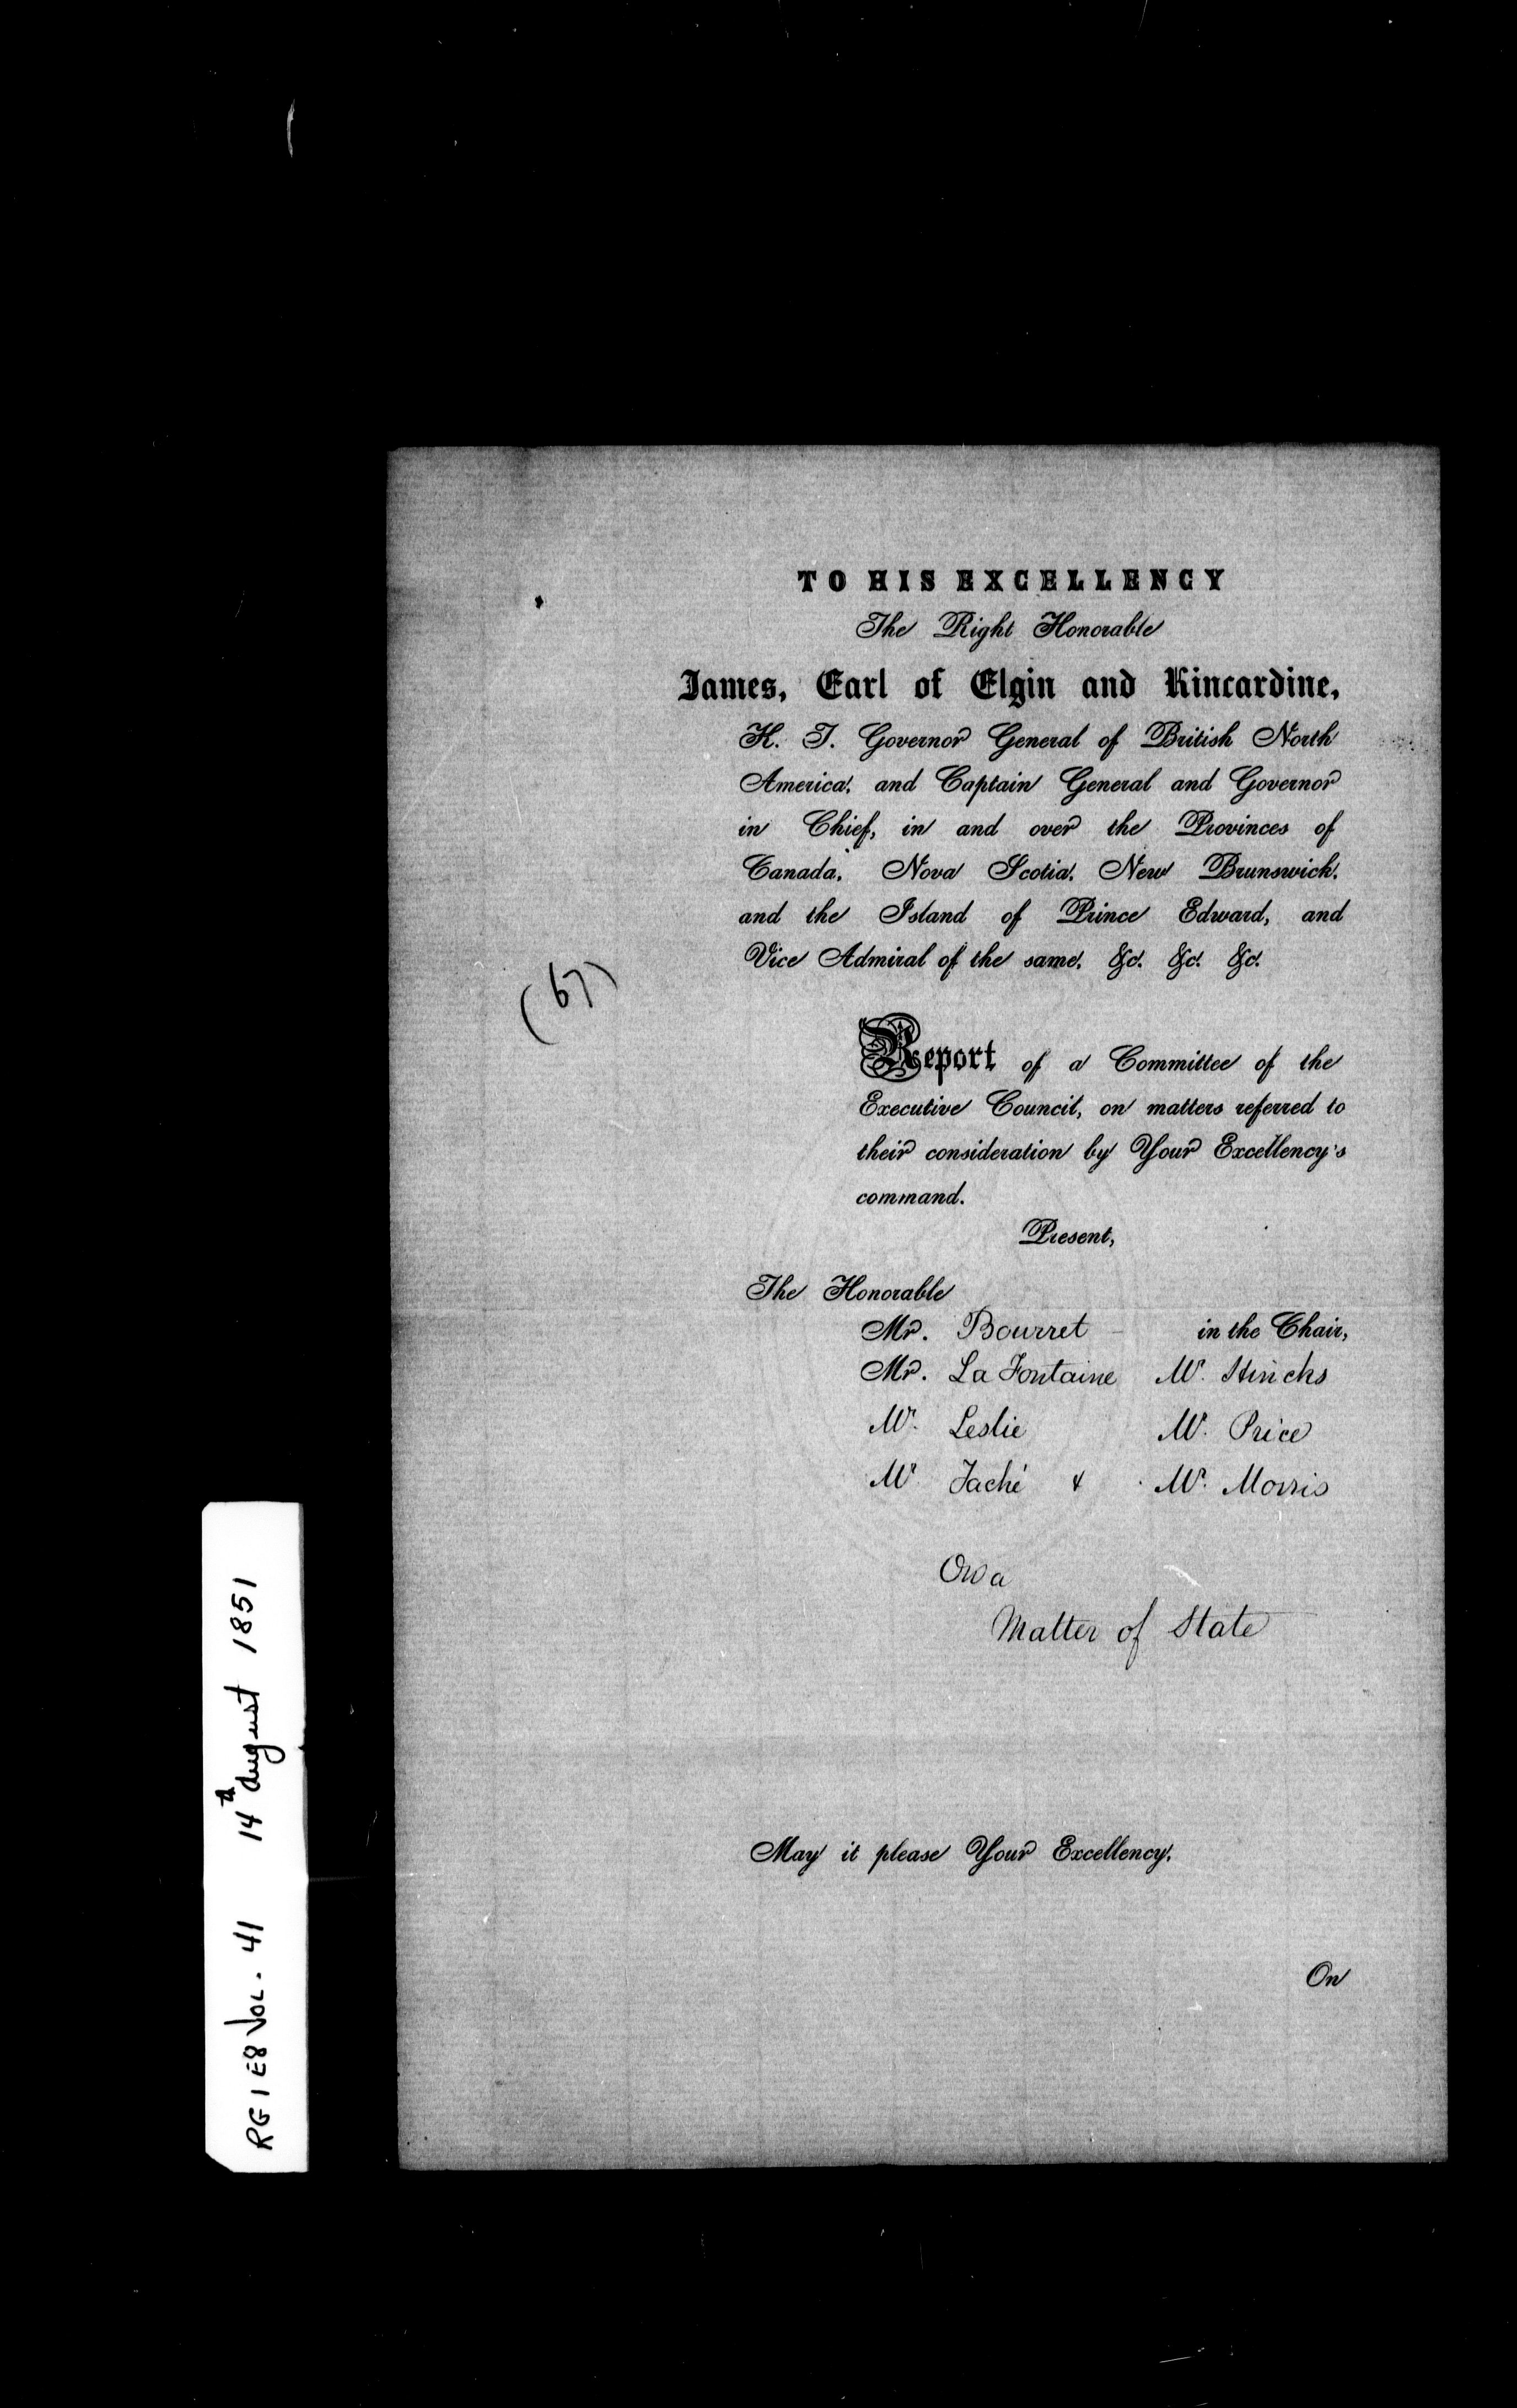 TO HIS EXCELLENCY
The Right Honorable
James, Earl of Elgin and Kincardine,
K. T. Governor General of British North
America, and Captain General and Governor
in Chief, in and over the Provinces of
Canada, Nova Scotia, New Brunswick,
and the Island of Prince Edward, and
Vice Admiral of the same, &c. &c. &c.
(67)
Report of a Committee of the
Executive Council, on matters referred to
their consideration by Your Excellency's
command.
Present,
The Honorable
Mr. Bourret - in the Chair,
Mr. La Fontaine Mr. Hincks
Mr. Leslie Mr. Price
Mr. Taché & Mr. Morris
On a
Matter of State
May it please Your Excellency,
On
RG 1 E8 VOL. 41 14th August 1851